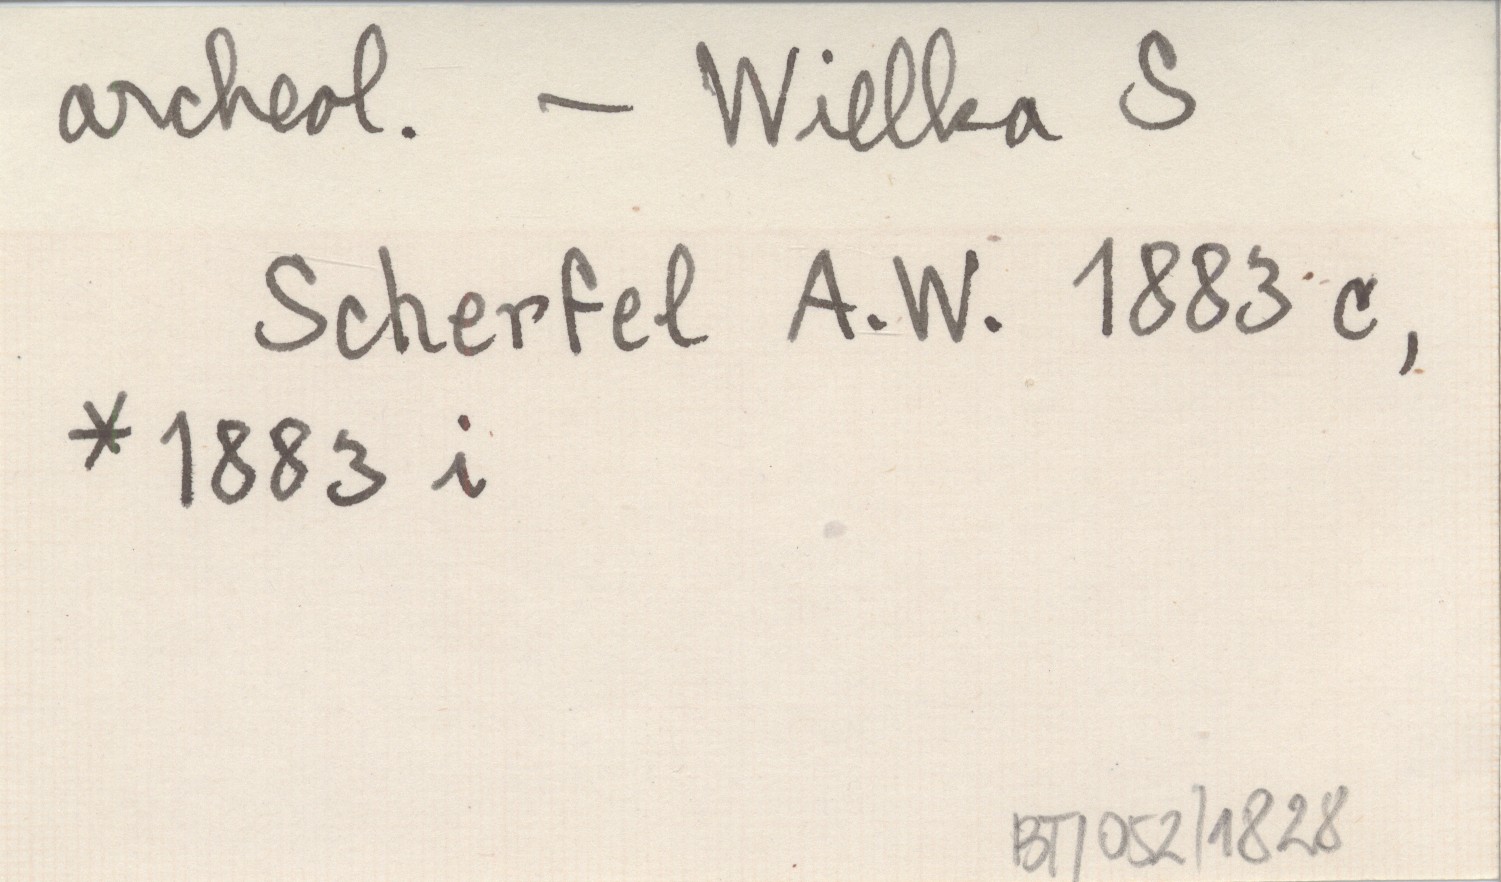 archeol. — Wielka S
Scherfel A.W. 1883 c,
* 1883 i
BT/052/1828